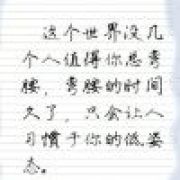 这个世界没几
个人值得你总弯
腰，弯腰的时间
久了，只会让人
习惯于你的低姿
态。